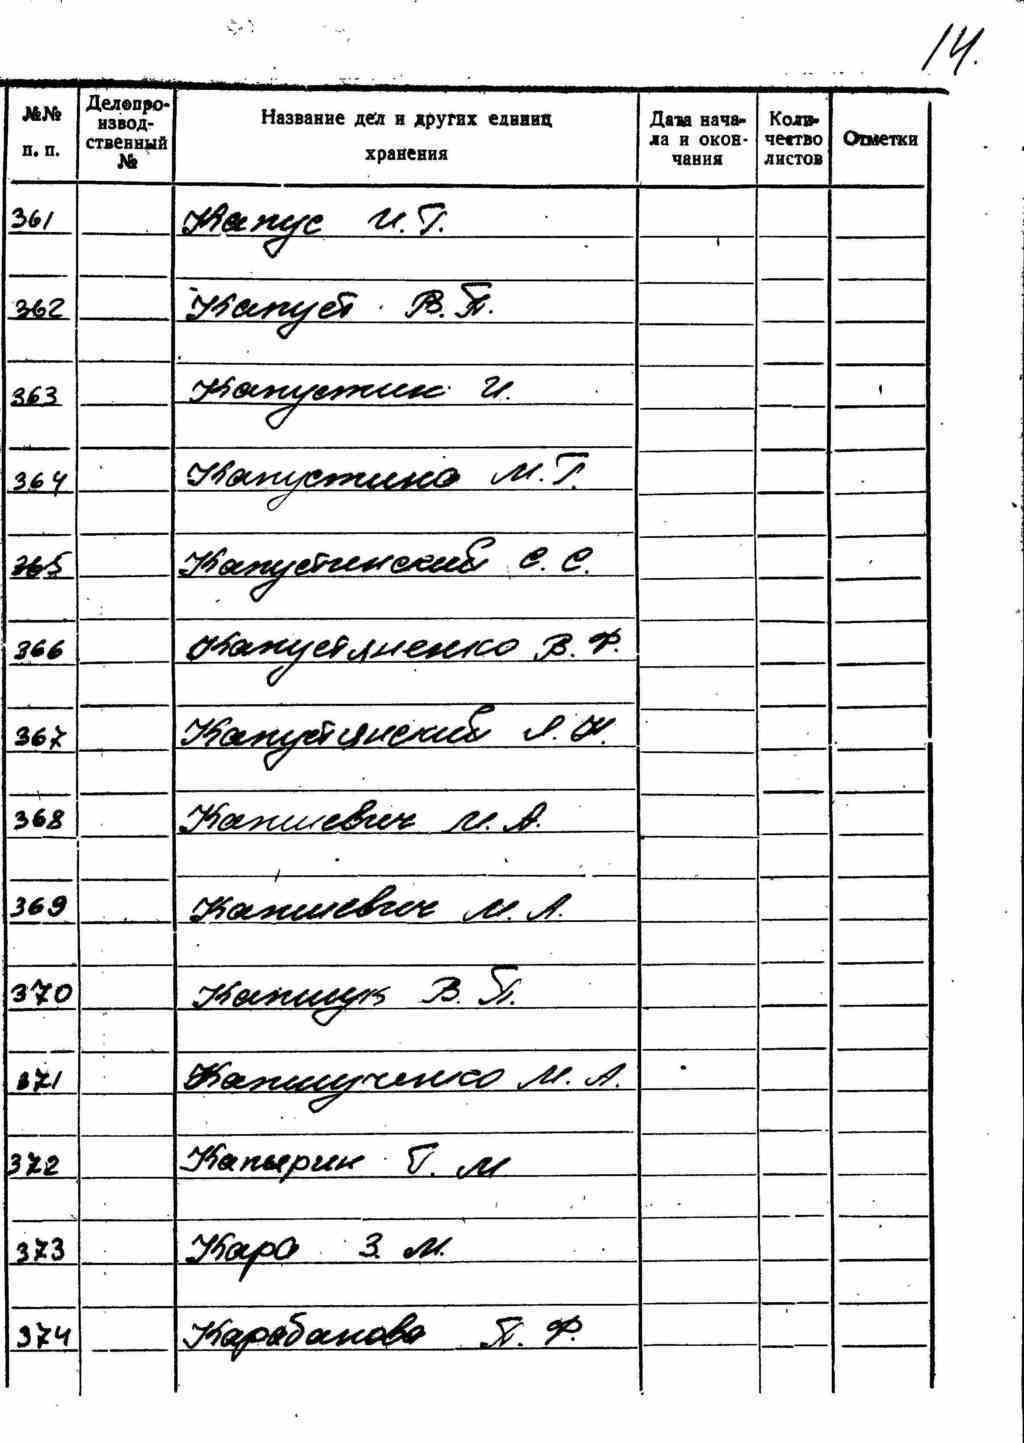 14.
№№ п. п.
Делопроизводственный №
Название дел и других единиц хранения
Дата начала и окончания
Количество листов
Отметки
361 Капус И.Г.
362 Капуст В.П.
363 Капустин И.
364 Капустина М.Г.
365 Капустинский С.С.
366 Капустяненко В.Ф.
367 Капустянский Л.Н.
368 Капшевич М.А.
369 Капшевич М.А.
370 Капшук В.П.
371 Капшученко М.А.
372 Капырин Г.М
373 Кара З.М.
374 Карабанова П.Ф.